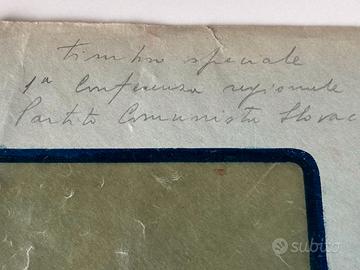 timbro speciale
1ª Conferenza regionale
Partito Comunista Slovac
subito